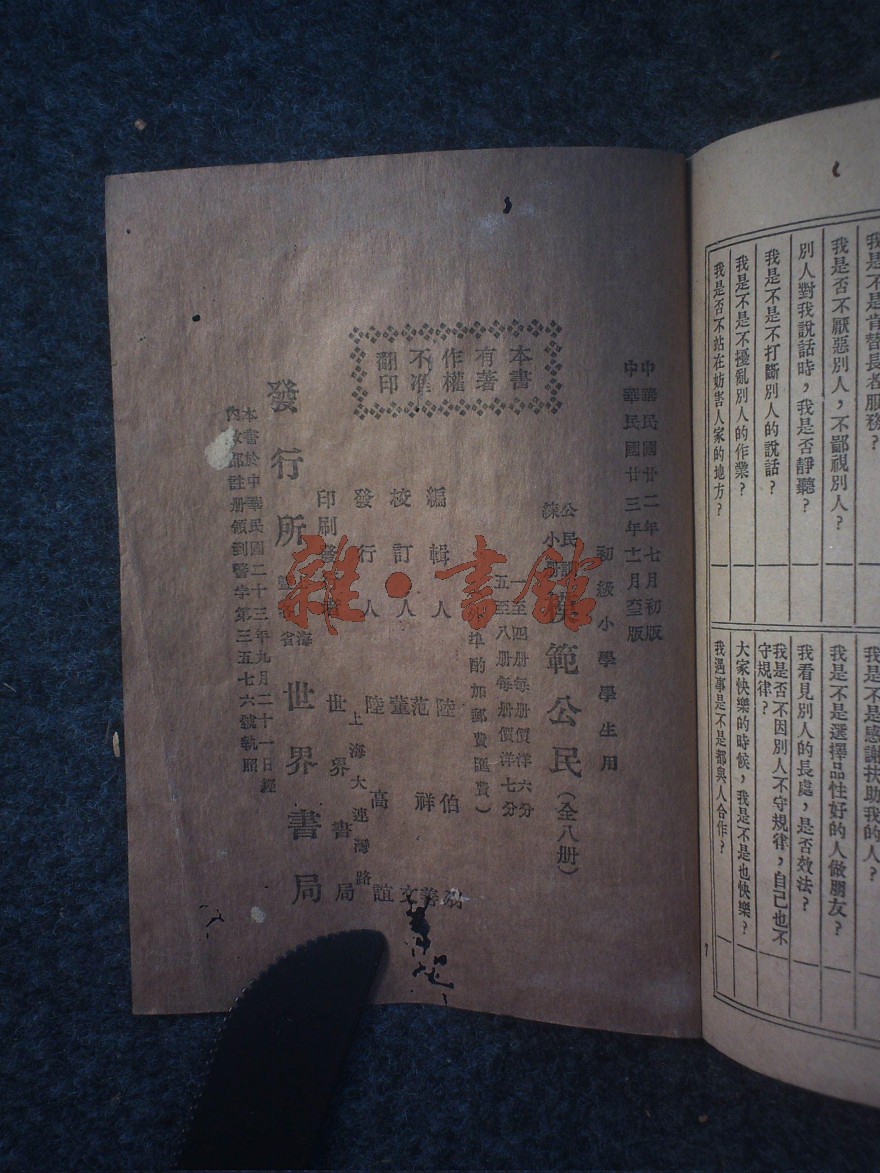 我是不是肯替長者服務?
我是否不厭惡別人,不鄙視別人?
別人對我說話時,我是否靜聽?
我是不是不打斷別人的說話?
我是不是不擾亂別人的作業?
我是否不站在妨害人家的地方?
我是不是感謝扶助我的人?
我是不是選擇品性好的人做朋友?
我看見別人的長處,是否效法?
我是否不因別人不守規律,自己也不
守規律?
大家快樂的時候,我是不是也快樂?
我遇事是不是都與人合作?
中華民國廿二年七月初版
中華民國廿三年十二月至版
初級小學學生用
公民訓
練小冊
模範公民(全八册)
一至四册每册價洋六分
五至八册每册價洋七分
埠酌加郵費匯費)
編輯人 陸伯
范祥善
校訂人 董文
發行人 陸高誼
印刷 世界書局
上海大連灣路
發行所 世界書局
海
省
本書於中華民國二十三年九月二十一日經
內政部註冊領到警字第三五七六號執照
本書
有著
作權
不准
翻印
雜·書館